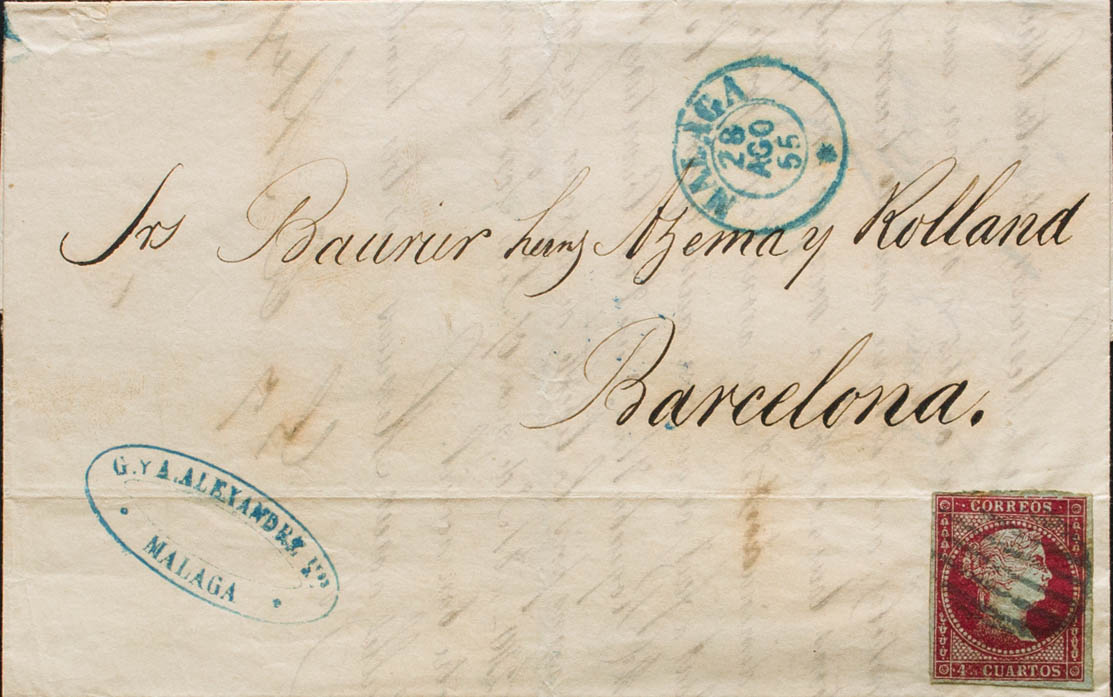 MALAGA
28
AGO
55
Srs Baurier herns Azema y Rolland
Barcelona.
G. Y A. ALEXANDRE
MALAGA
CORREOS
4 CUARTOS